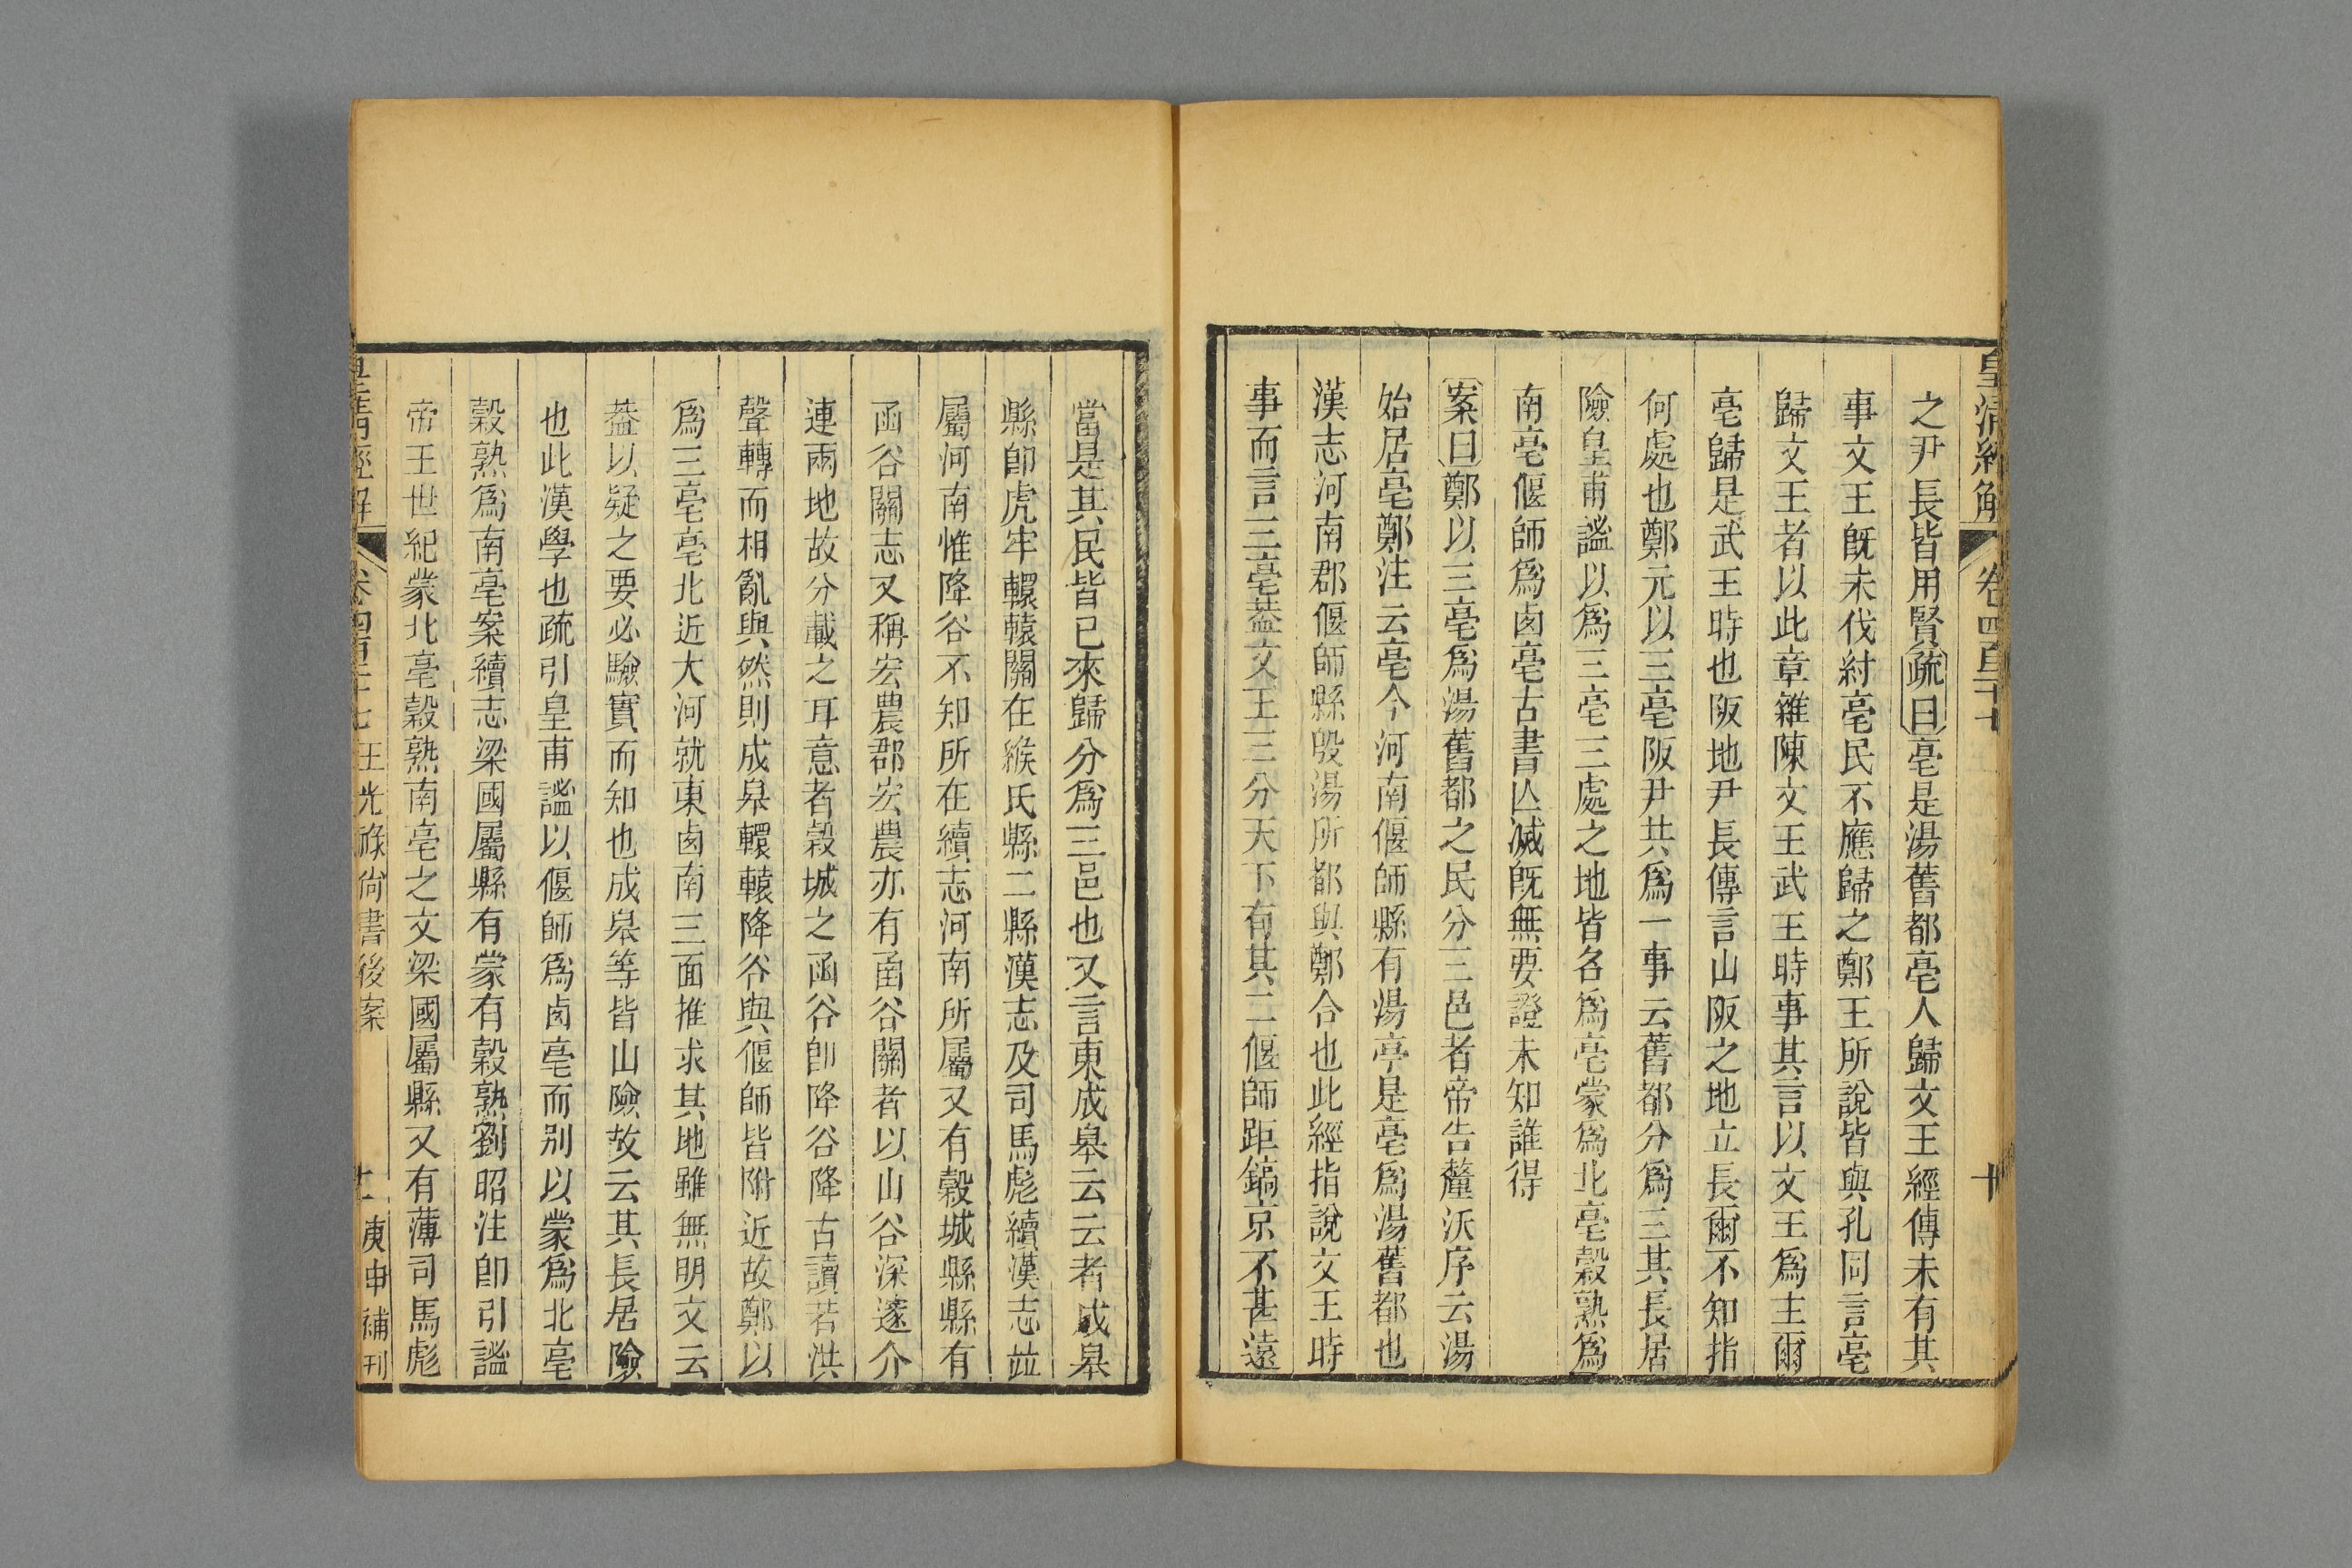 皇清經解 卷四百二十七 十
之尹長皆用賢疏曰亳是湯舊都亳人歸文王經傳未有其
事文王旣未伐紂亳民不應歸之鄭王所說皆與孔同言亳
歸文王者以此章雜陳文王武王時事其言以文王爲主爾
亳歸是武王時也阪地尹長傳言山阪之地立長爾不知指
何處也鄭元以三亳阪尹共爲一事云舊都分爲三其長居
險皇甫謐以爲三亳三處之地皆名爲亳蒙爲北亳穀熟爲
南亳偃師爲卥亳古書亾滅旣無要證未知誰得
案曰鄭以三亳爲湯舊都之民分三邑者帝告釐沃序云湯
始居亳鄭注云亳今河南偃師縣有湯亭是亳爲湯舊都也
漢志河南郡偃師縣殷湯所都與鄭合也此經指說文王時
事而言三亳葢文王三分天下有其二偃師距鎬京不甚遠
當是其民皆已來歸分爲三邑也又言東成皋云云者成皋
縣卽虎牢轘轅關在緱氏縣二縣漢志及司馬彪續漢志竝
屬河南惟降谷不知所在續志河南所屬又有穀城縣縣有
函谷關志又稱宏農郡宏農亦有函谷關者以山谷深邃介
連兩地故分載之耳意者穀城之函谷卽降谷降古讀若洪
聲轉而相亂與然則成皋轘轅降谷與偃師皆附近故鄭以
爲三亳亳北近大河就東卥南三面推求其地雖無明文云
葢以疑之要必驗實而知也成皋等皆山險故云其長居險
也此漢學也疏引皇甫謐以偃師爲卥亳而别以蒙爲北亳
穀熟爲南亳案續志梁國屬縣有蒙有穀熟劉昭注卽引謐
帝王世紀蒙北亳穀熟南亳之文梁國屬縣又有薄司馬彪
皇清經解 卷四百二十七 王光祿尙書後案 十一 庚申補刊